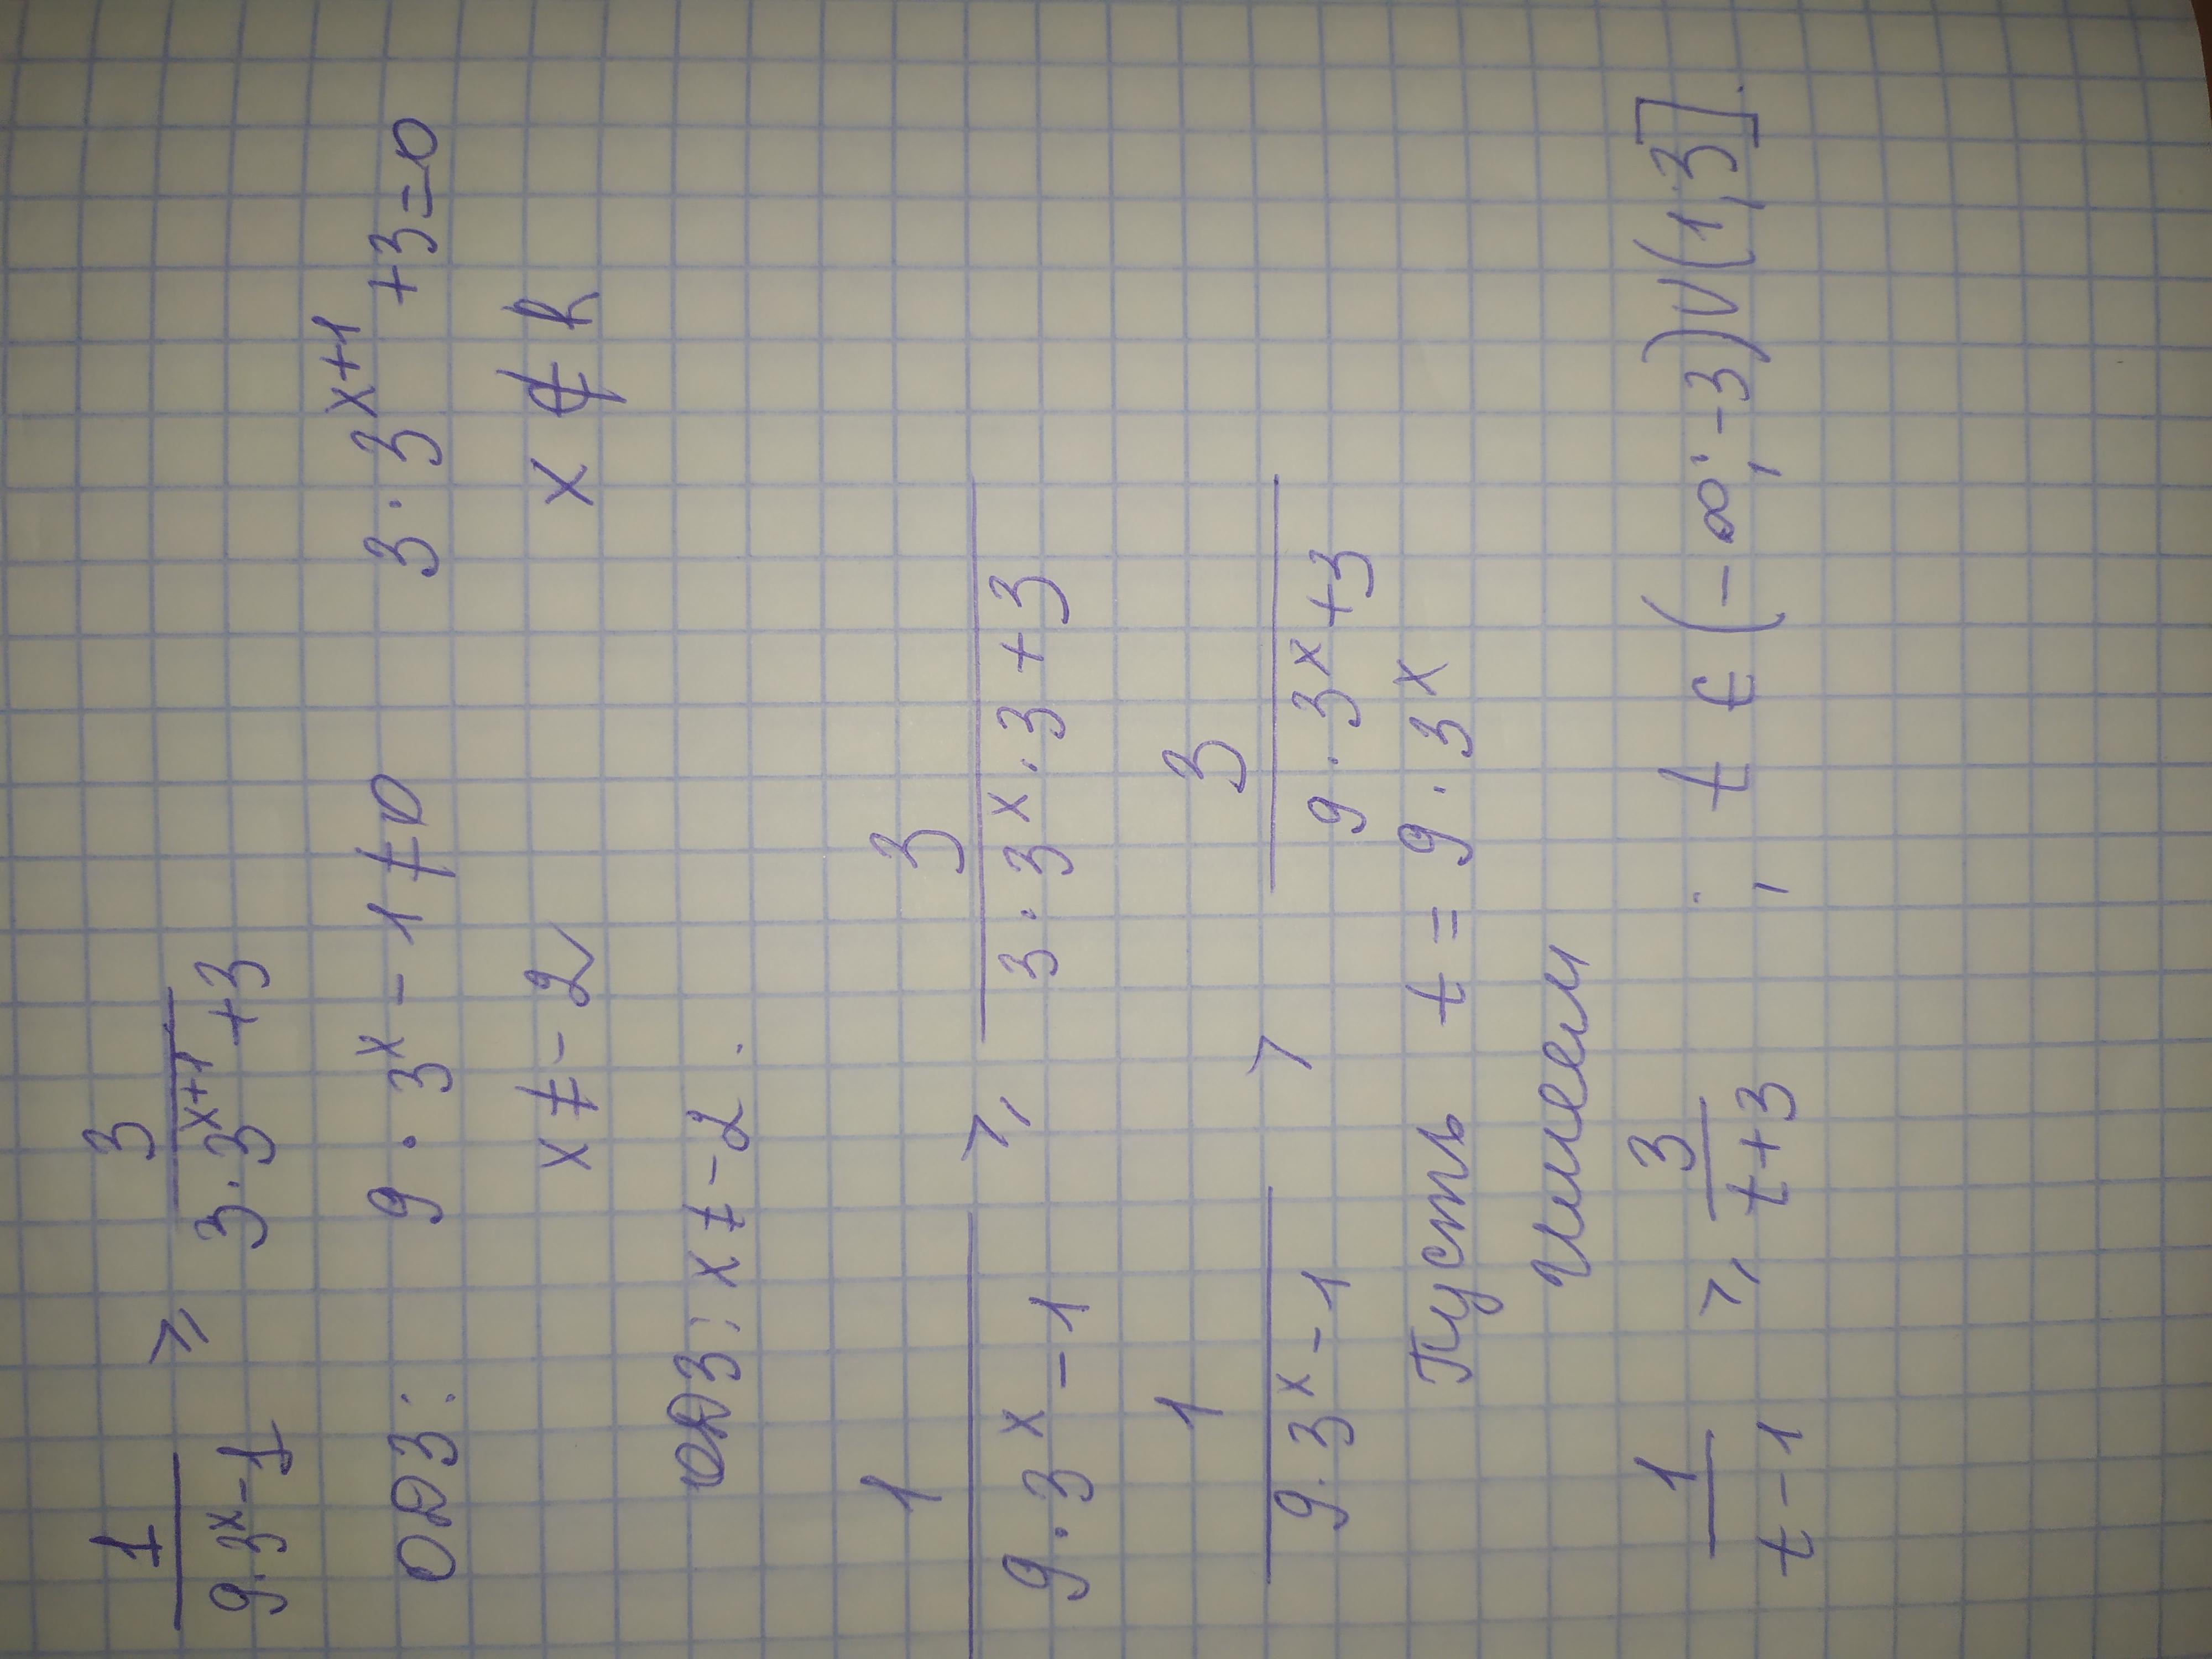 1/(9·3^x-1) ≥ 3/(3·3^(x+1)+3)
ОДЗ: 9·3^x-1≠0 3·3^(x+1)+3=0
x≠-2 x∉R
ОДЗ: x≠-2.
1/(9·3^x-1) ≥ 3/(3·3^x·3+3)
1/(9·3^x-1) > 3/(9·3^x+3)
Пусть t=9·3^x
имеем
1/(t-1) ≥ 3/(t+3); t∈(-∞;-3)∪(1;3].